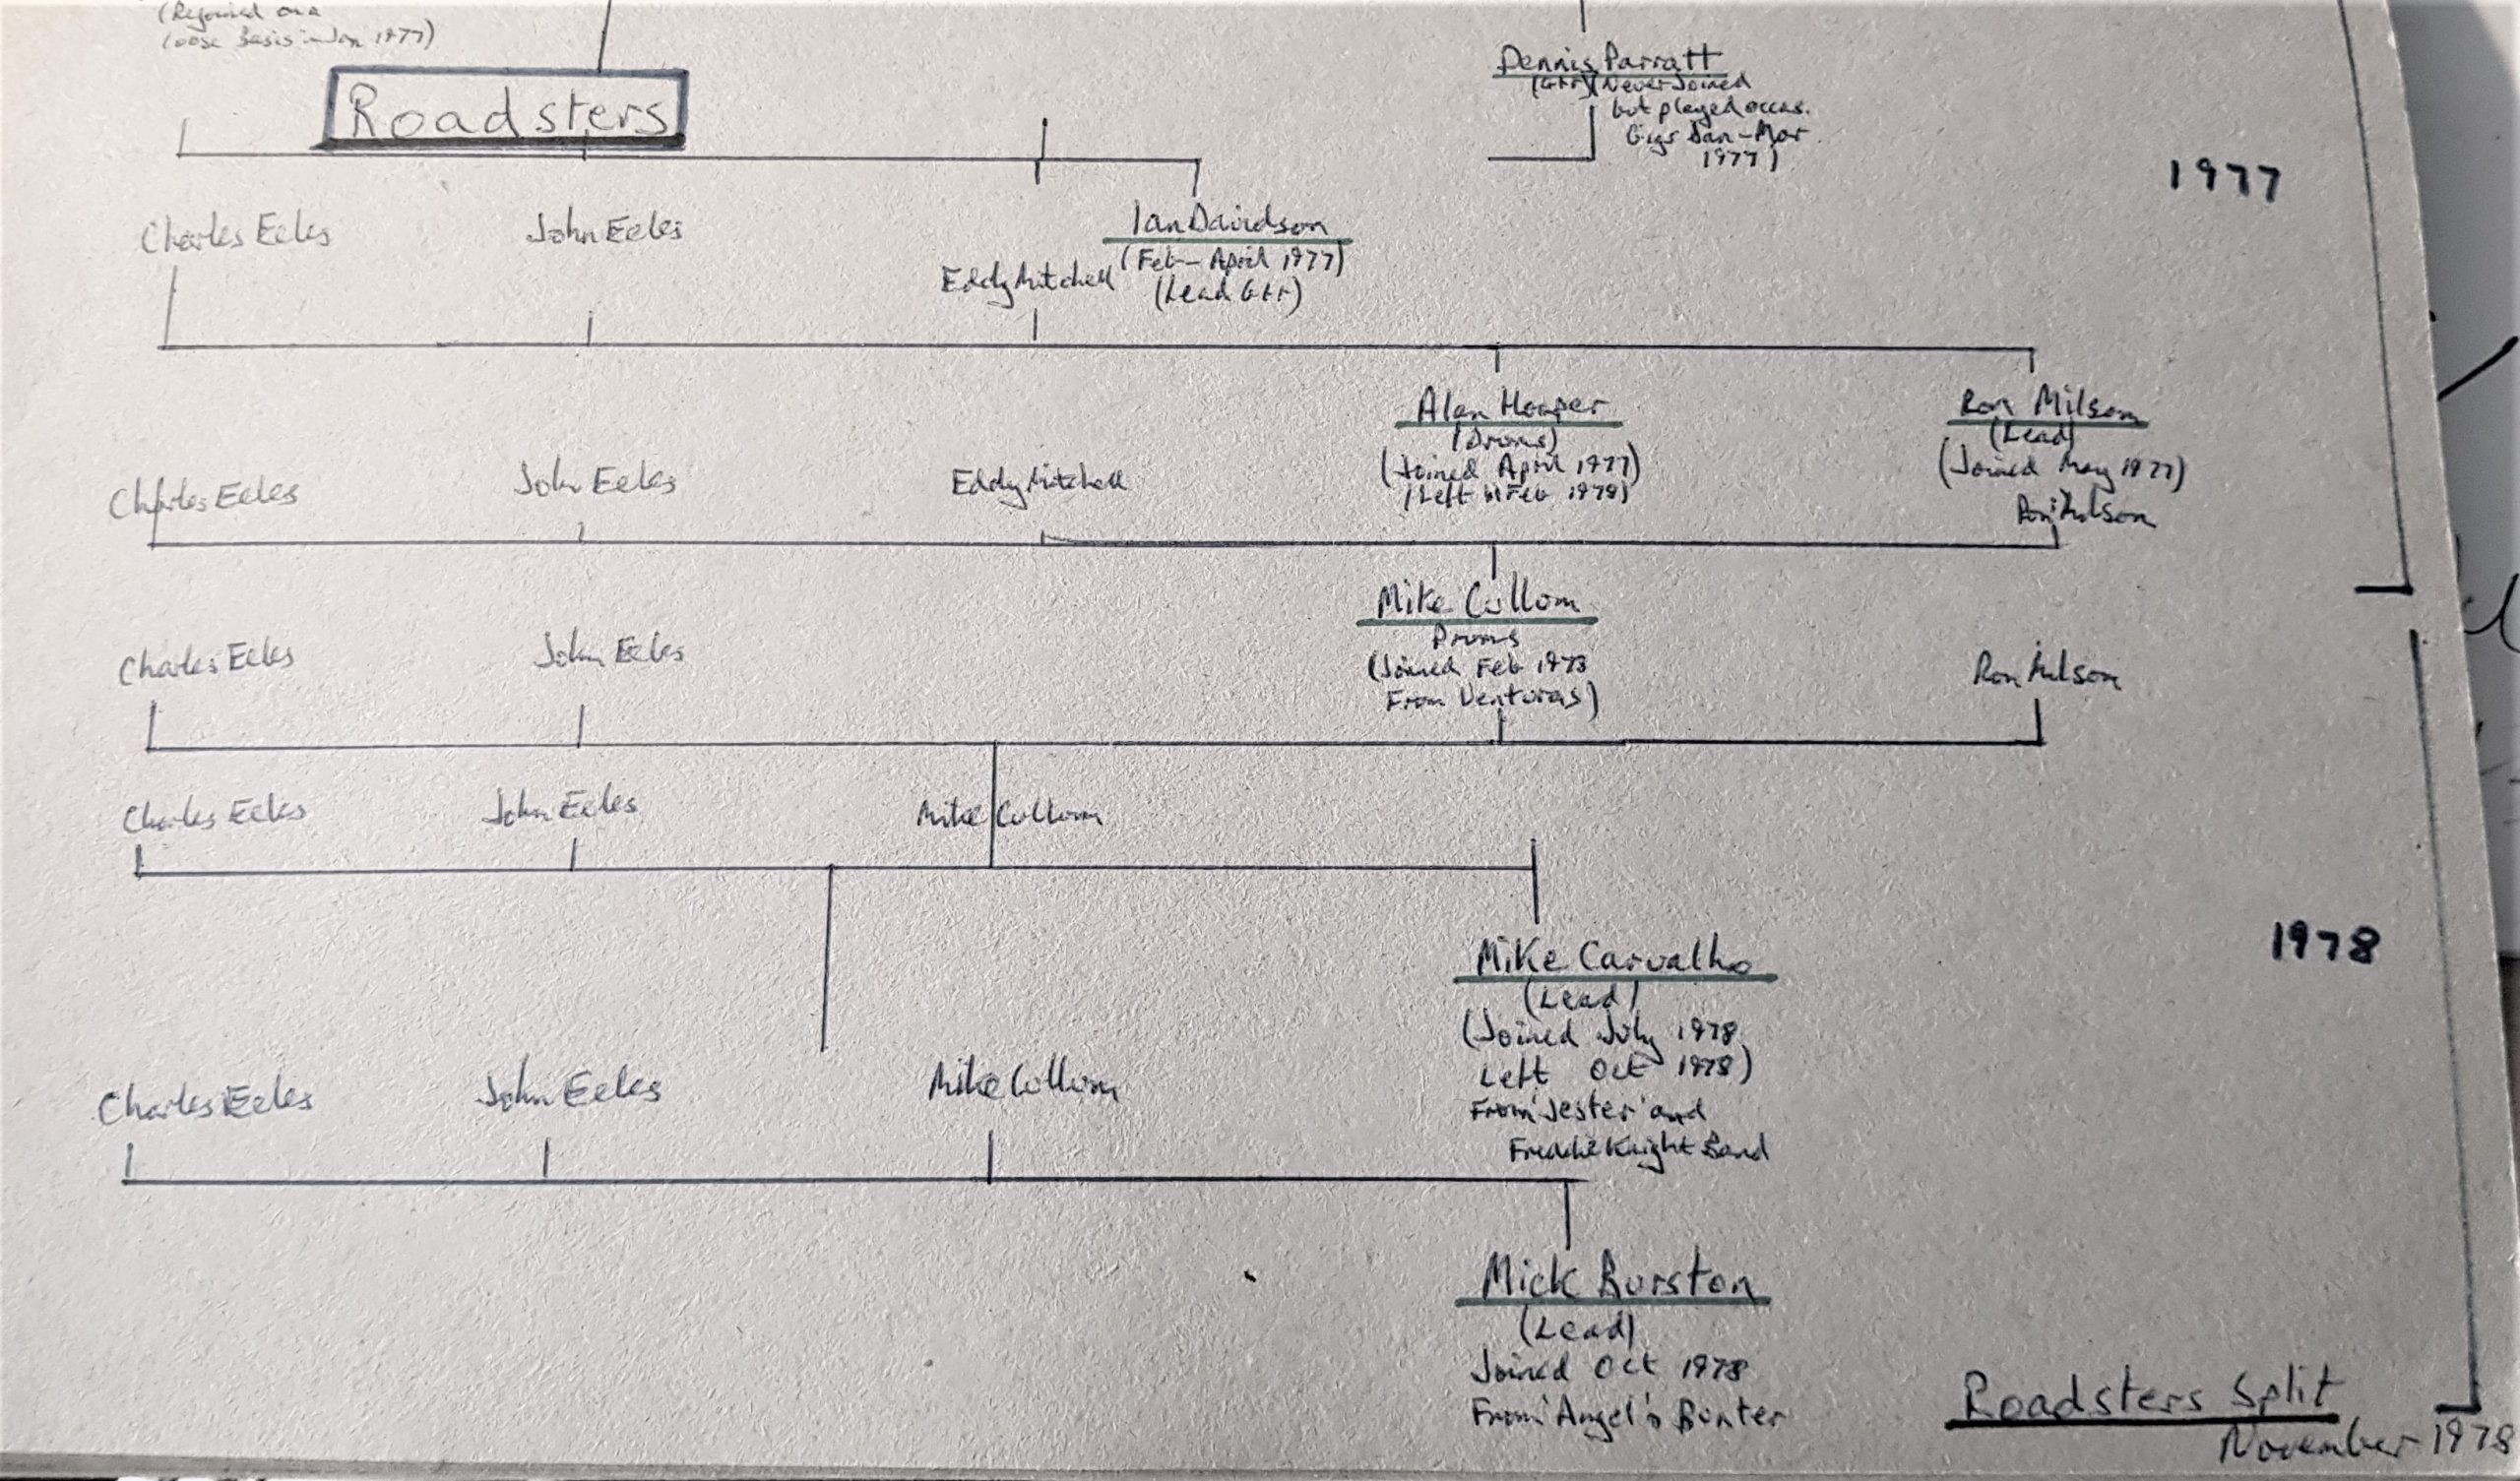 (Rejoined on a
loose basis in Jan 1977)
Roadsters
Dennis Parratt
(Gtr) (Never Joined
but played occas.
Gigs Jan-Mar
1977)
1977
Charles Eeles
John Eeles
Ian Davidson
(Feb - April 1977)
(Lead Gtr)
Eddy Mitchell
Alan Hooper
(Drums)
(Joined April 1977)
(Left Feb 1978)
Ron Milsom
(Lead)
(Joined May 1977)
Charles Eeles
John Eeles
Eddy Mitchell
Ron Milson
Mike Cullom
Drums
(Joined Feb 1978
From Venturas)
Charles Eeles
John Eeles
Ron Milson
Charles Eeles
John Eeles
Mike Cullom
1978
Mike Carvalho
(Lead)
(Joined July 1978
Left Oct 1978)
From 'Jester' and
Freddie Knight Band
Charles Eeles
John Eeles
Mike Cullom
Mick Burston
(Lead)
Joined Oct 1978
From 'Angel's Bunter
Roadsters Split
November 1978